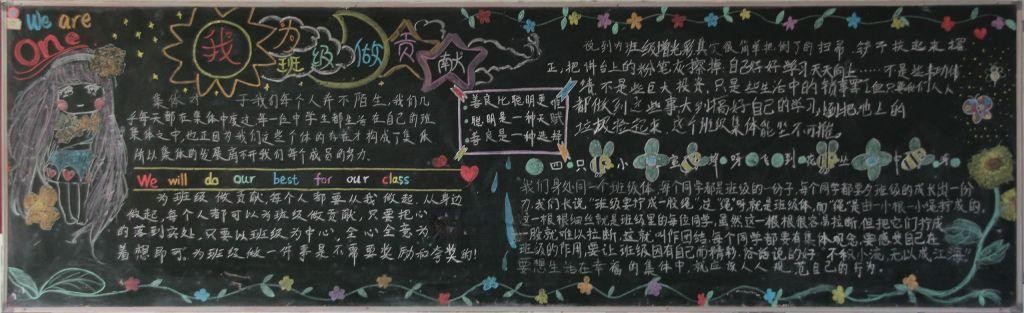 We are
One
我为班级做贡献
集体对于我们每个人并不陌生,我们几
乎每天都在集体中度过,每一位中学生都生活在自己的班
集体之中,也正因为我们这些个体的存在才构成了集体
所以集体的发展离不开我们每个成员的努力.
We will do our best for our class
为班级做贡献,每个人都要从我做起,从身边
做起,每个人都可以为班级做贡献,只要把心
的落到实处,只要以班级为中心,全心全意为
着想即可.为班级做一件事是不需要奖励和夸奖的!
善良比聪明更
聪明是一种天赋
善良是一种选择
说到为班级增光彩,真
正,把讲台上的粉笔灰擦掉,自己好好学习天天向上……不是
绩,不是巨大投资,只是些生活中的
都做到这些事
垃圾捡起来,这个班级集体能坚不可摧.
四只小 蜜 呀飞到花丛中 呀
我们身处同一个班级体,每个同学都是班级的一份子,每个同学都要为班级的成长出一份
力.我们长说,"班级要拧成一股绳",这"绳"呀就是班级体,而"绳"是由一小根一小绳拧成的,
这一根根细丝就是班级里的每位同学,虽然这一根根很容易拉断,但把它们拧成
一股就难以拉断,这就叫作团结,每个同学都要有集体观念,要感受自己在
班级的作用,要让班级因有自己而精彩,俗话说的好"不积小流,无以成江海"
要想生活在幸福的集体中,就应该人人规范自己的行为.